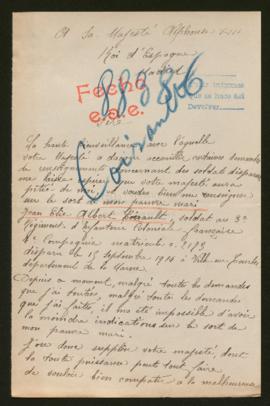 A Sa Majesté Alphonse XIII
Roi d'Espagne
Madrid
Fecho
e.s.e.
que se hace del
Devolver.
Courante
La haute bienveillance avec laquelle
votre Majesté a daigné accueillir certaines demandes
de renseignements concernant des soldats disparus
me laisse espérer que votre majesté aura
pitié de moi et voudra bien me renseigner
sur le sort de mon pauvre mari
Jean Elie Albert soldat au 3e
Régiment d'Infanterie Coloniale française
4e Compagnie matricule
disparu le 15 septembre 1914 à Ville-sur-Tourbe
département de la Marne
Depuis ce moment, malgré toutes les demandes
que j'ai faites, il m'a été impossible d'avoir
la moindre indications sur le sort de
mon pauvre mari.
J'ose donc supplier votre majesté, dont
la toute puissance peut tout faire
de vouloir bien compatir à la malheureuse